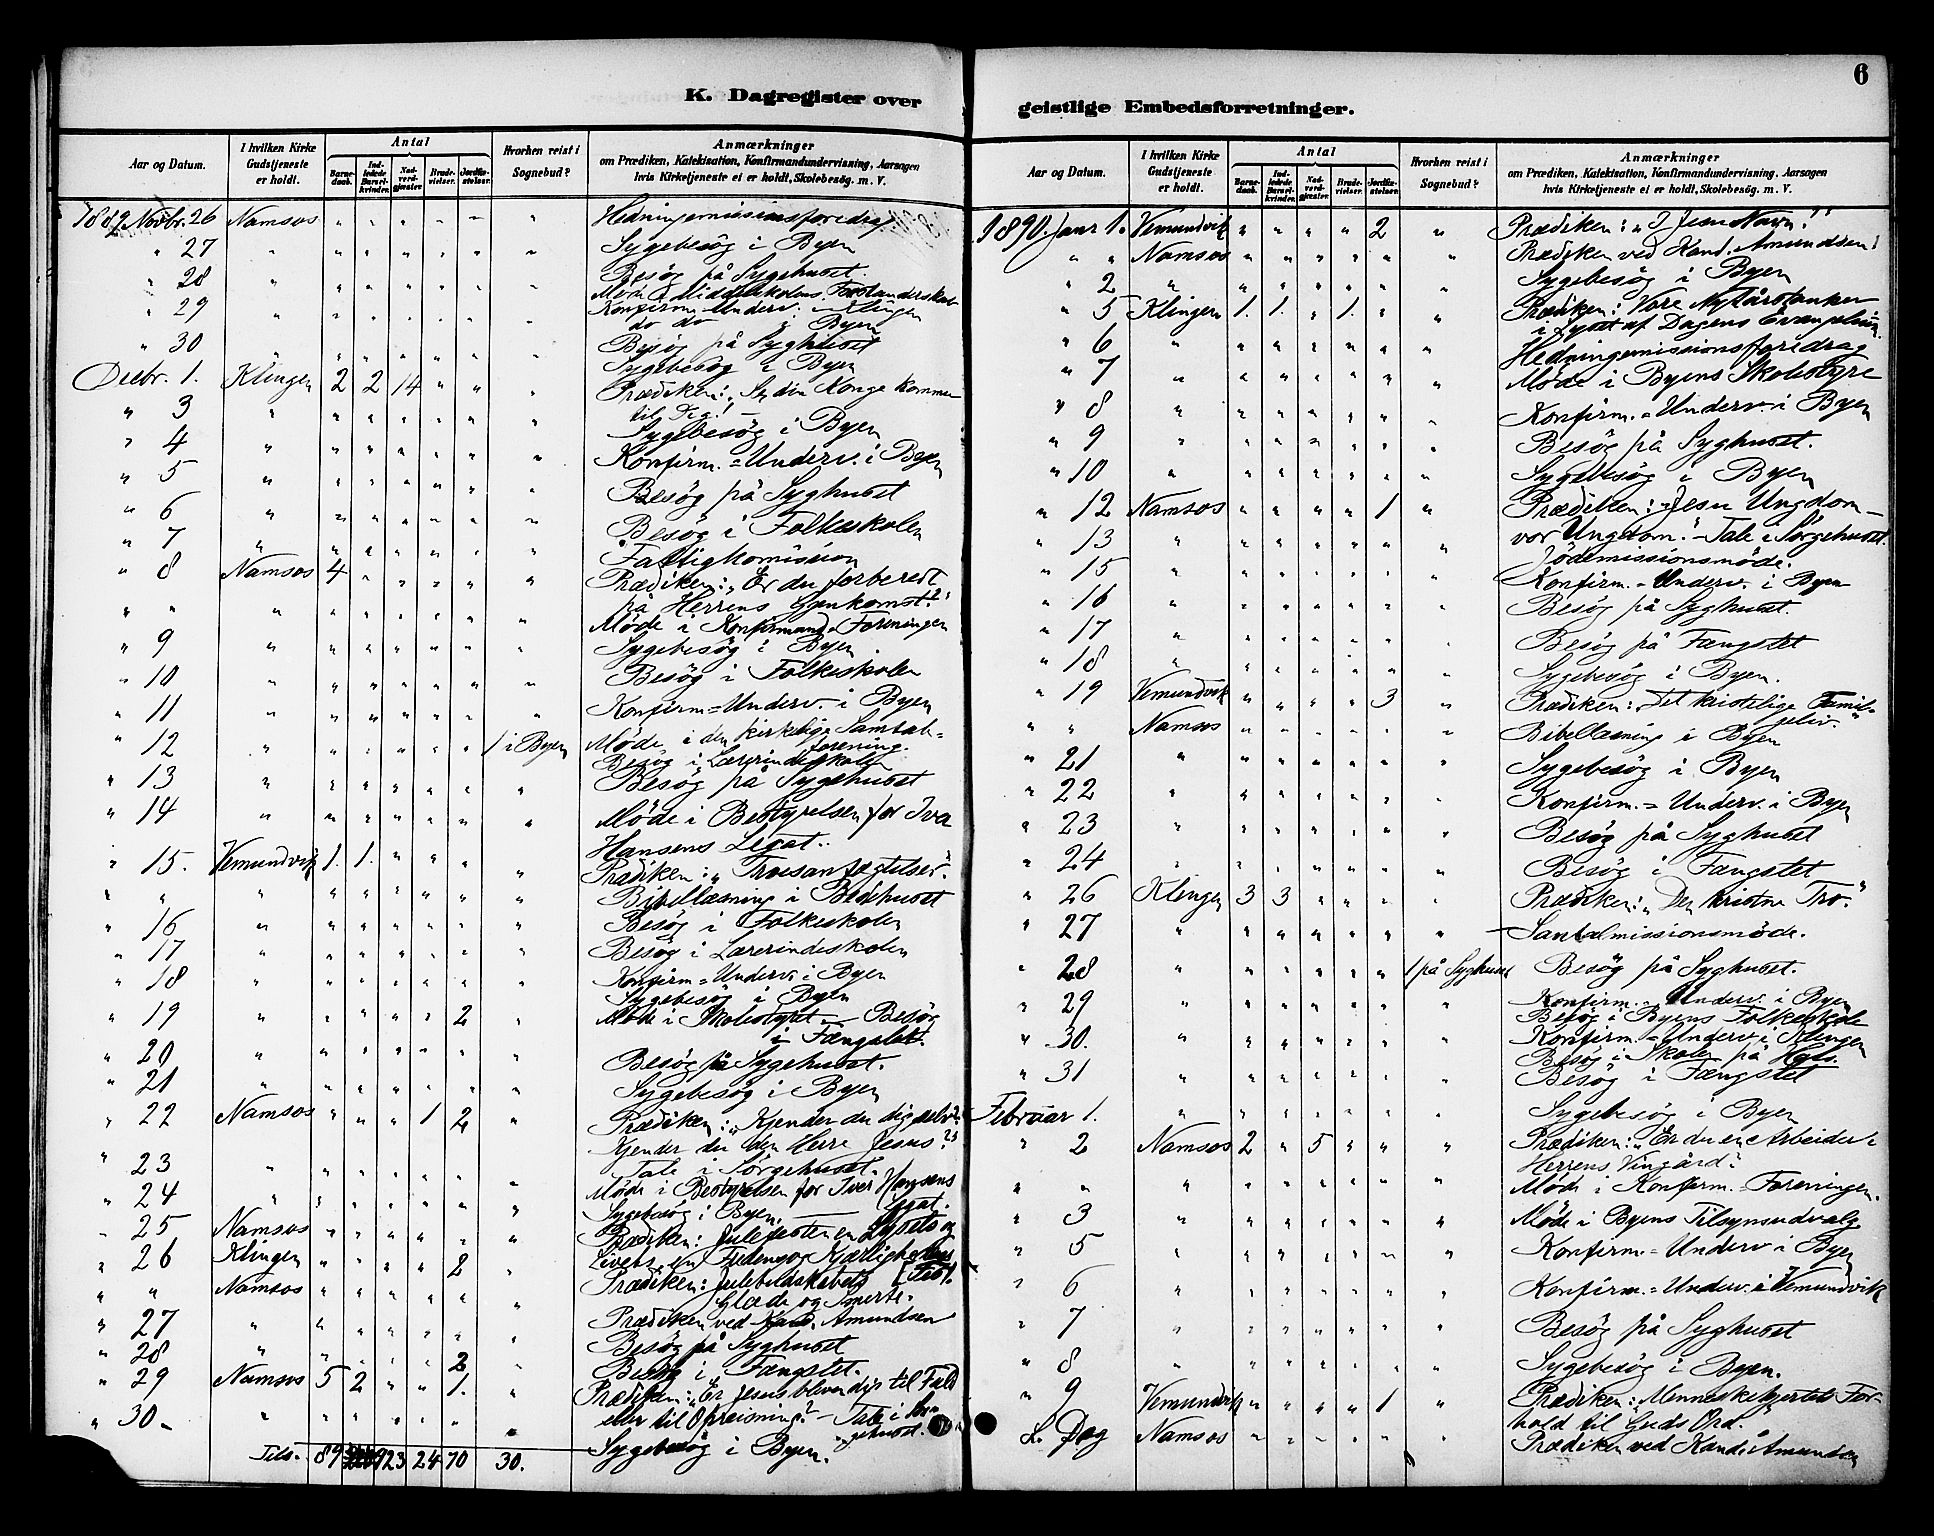 6
K. Dagregister over
geistlige Embedsforretninger.
Aar og Datum.
I hvilken Kirke Gudstjeneste er holdt.
Antal
Barnedaab.
Indledede Barselkvinder.
Nadverdgjester.
Brudevielser.
Jordfæstelser.
Hvorhen reist i Sognebud?
Anmærkninger
om Prædiken, Katekisation, Konfirmandundervisning, Aarsagen
hvis Kirketjeneste ei er holdt, Skolebesøg. m. V.
Novbr. 26 Namsos " " " " " " Hedningemissionsforedrag
" 27 " " " " " " " Sygebesög i Byen
" 28 " " " " " " " Besög på Sygehuset.
Möde i Middelskolens Forstanderskab
" 29 " " " " " " " Konfirm.-Underv. i Klingen
do do i Byen
" 30 " " " " " " " Besög på Syghuset
Sygebesög i Byen
Decbr. 1. Klingen 2 2 14 " " " Prædiken: "Se din Konge kommer
til Dig! –
" 3 " " " " " " " Sygebesög i Byen
" 4 " " " " " " " Konfirm.=Underv. i Byen
" 5 " " " " " " " Besög på Syghuset
" 6 " " " " " " " Besög i Folkeskolen
" 7 " " " " " " " Fattigkomision
" 8 Namsos 4 " " " " " Prædiken: "Er du forberedt
på Herrens Gjenkomst?"
" " " " " " " " " Möde i Konfirmand=Foreningen
" 9 " " " " " " " Sygebesög i Byen
" 10 " " " " " " " Besög i Folkeskolen
" 11 " " " " " " " Konfirm=Underv. i Byen
" 12 " " " " " " 1 i Byen Möde i den kirkelige Samtale-
forening.
Besög i Lærerindeskolen
" 13 " " " " " " " Besög på Sygehuset
" 14 " " " " " " " Möde i Bestyrelsen for Iver
Hansens Legat.
" 15. Vemundvik 1. 1. " " " " Prædiken: "Troesanfægtelser."
" " " " " " " " " Bibellæsning i Bedehuset
" 16 " " " " " " " Besög i Folkeskolen
" 17 " " " " " " " Besög i Lærerindeskolen
" 18 " " " " " " " Konfirm=Underv. i Byen
Sygebesög i Byen
" 19 " " " " " 2 " Möde i Skolestyret – Besög
i Fængslet.
" 20 " " " " " " " Besög på Sygehuset.
" 21 " " " " " " " Sygebesög i Byen
" 22 Namsos " " " 1 2 " Prædiken: "Kjender du dig selv?
Kjender du den Herre Jesus?"
" 23 " " " " " " " Tale i Sörgehuset.
" 24 " " " " " " " Möde i Bestyrelsen for Iver Hansens
Legat.
Sygebesög i Byen.
" 25 Namsos " " " " " " Prædiken: Julefesten en Lysets og
" 26 Klingen " " " " 2 " Livets, en Fredens og Kjærlighedens
" " Namsos " " " " " " Prædiken: Julebudskabets
Glæde og Smerte.
" 27 " " " " " " " Prædiken ved Kand. Amundsen
" 28 " " " " " 2 " Besög på Syghuset
Besög i Fængslet.
" 29 Namsos 5 2 " " 1. " Prædiken: "Er Jesus bleven dig til Fald
" 30 – " " " " " " " eller til Opreisning?" – Tale i Sör-
gehuset.
Sygebesög i Byen.
Tils. 89 24 70 30.
Aar og Datum.
I hvilken Kirke Gudstjeneste er holdt.
Antal
Barnedaab.
Indledede Barselkvinder.
Nadverdgjester.
Brudevielser.
Jordfæstelser.
Hvorhen reist i Sognebud?
Anmærkninger
om Prædiken, Katekisation, Konfirmandundervisning, Aarsagen
hvis Kirketjeneste ei er holdt, Skolebesög. m. V.
1890. Janr 1. Vemundvik " " " " 2 " Prædiken: "I Jesu Navn!"
" " Namsos " " " " " " Prædiken ved Kand. Amundsen
" 2 " " " " " " " Sygebesög i Byen
" 5 Klingen 1. 1. " 1. " " Prædiken: Vore Nytårstanker
i Lyset af Dagens Evangelium
" 6 " " " " " " " Hedningemissionsforedrag
" 7 " " " " " " " Möde i Byens Skolestyre
" 8 " " " " " " " Konfirm.=Underv. i Byen
" 9 " " " " " " " Besög på Syghuset.
" 10 " " " " " " " Sygebesög i Byen
" 12 Namsos " " " " 1 " Prædiken: "Jesu Ungdom –
vor Ungdom." – Tale i Sörgehuset.
" 13 " " " " " " " Jödemissionsmöde.
" 15 " " " " " " " Konfirm.=Underv. i Byen
" 16 " " " " " " " Besög på Syghuset.
" 17 " " " " " " " Besög på Fængslet
" 18 " " " " " " " Sygebesög i Byen.
" 19 Vemundvik " " " " 3 " Prædiken: "Det kristelige Famil-
jeliv."
" " Namsos " " " " " " Bibellæsning i Byen
" 21 " " " " " " " Sygebesög i Byen
" 22 " " " " " " " Konfirm.=Underv. i Byen
" 23 " " " " " " " Besög på Syghuset
" 24 " " " " " " " Besög i Fængslet
" 26 Klingen 3 3 " " " " Prædiken: "Den kristne Tro."
" 27 " " " " " " – Santalmissionsmöde.
" 28 " " " " " " 1 på Syghuset Besög på Syghuset.
" 29 " " " " " " " Konfirm.=Underv. i Byen
Besög i Byens Folkeskole
" 30. " " " " " " " Konfirm.=Underv. i Klingen
Besög i Skolen på
" 31 " " " " " " " Besög i Fængslet
Februar 1. " " " " " " " Sygebesög i Byen
" 2 Namsos 2 " 5 " " " Prædiken: "Er du en Arbeider i
Herrens Vingård?"
" " " " " " " " " Möde i Konfirm.=Foreningen.
" 3 " " " " " " " Möde i Byens Tilsynsudvalg
" 5 " " " " " " " Konfirm.=Underv. i Byen
" 6 " " " " " " " Konfirm.=Underv. i Vemundvik
" 7 " " " " " " " Besög på Syghuset
" 8 " " " " " " " Sygebesög i Byen.
" 9 Vemundvik " " " " 1 " Prædiken: Menneskehjertets For-
hold til Guds Ord."
s. Dag Namsos " " " " " " Prædiken ved Kand. Amundsen